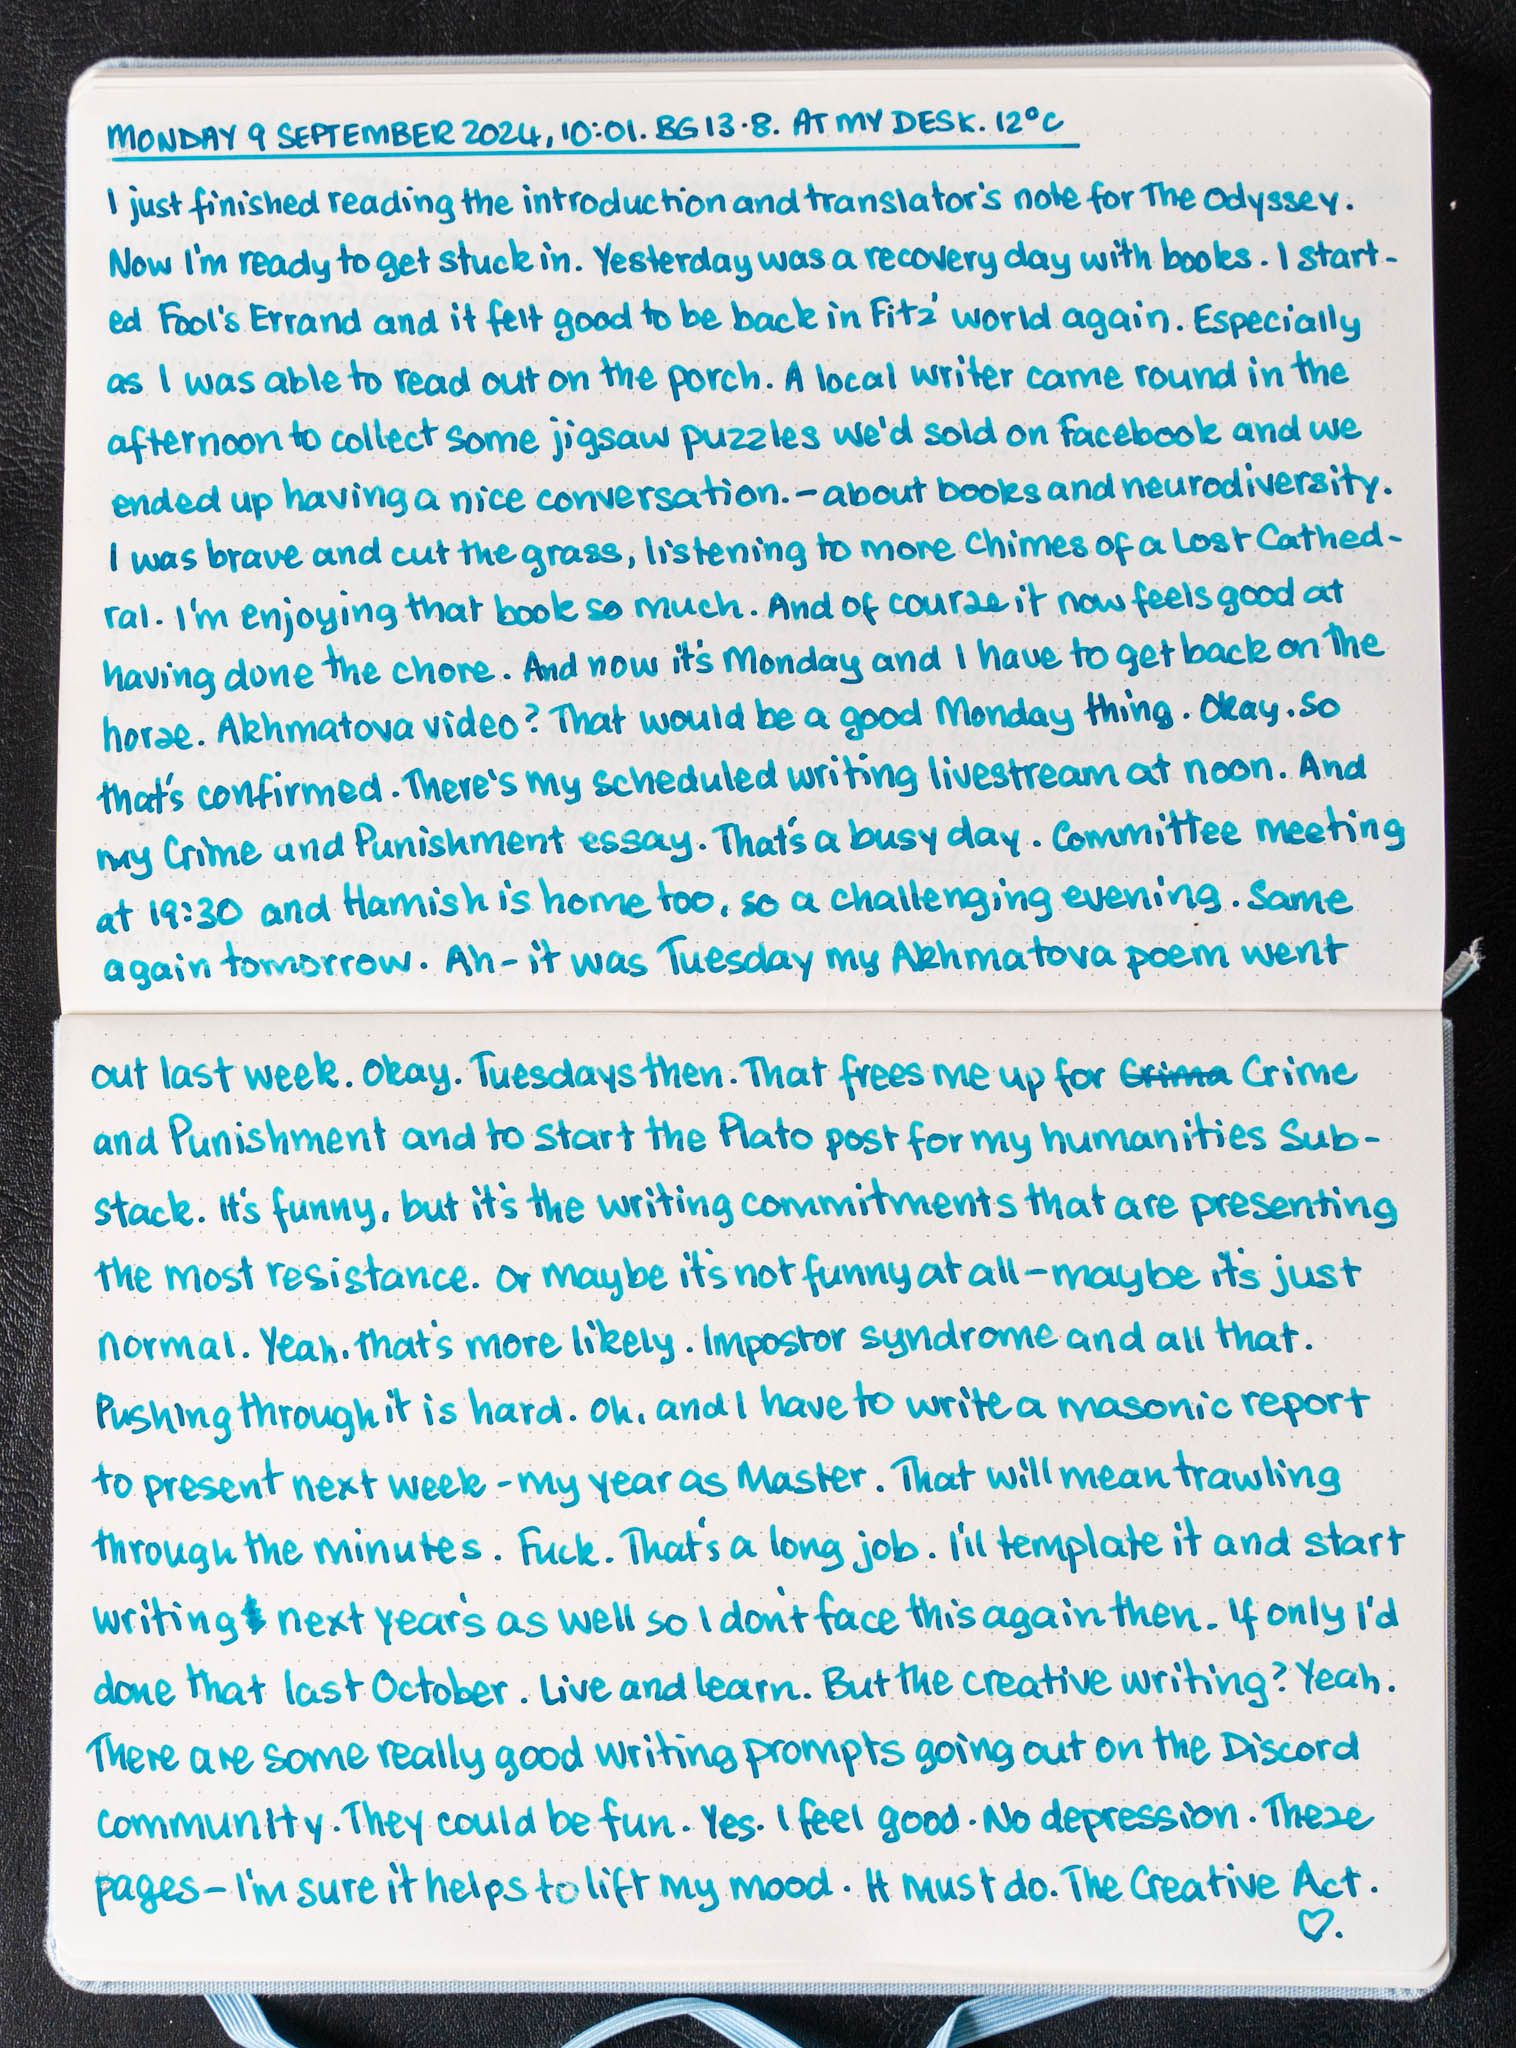 MONDAY 9 SEPTEMBER 2024, 10:01. BG 13.8. AT MY DESK. 12°C
I just finished reading the introduction and translator's note for The Odyssey.
Now I'm ready to get stuck in. Yesterday was a recovery day with books. I start-
ed Fool's Errand and it felt good to be back in Fitz' world again. Especially
as I was able to read out on the porch. A local writer came round in the
afternoon to collect some jigsaw puzzles we'd sold on Facebook and we
ended up having a nice conversation. - about books and neurodiversity.
I was brave and cut the grass, listening to more Chimes of a Lost Cathed-
ral. I'm enjoying that book so much. And of course it now feels good at
having done the chore. And now it's Monday and I have to get back on the
horse. Akhmatova video? That would be a good Monday thing. Okay. So
that's confirmed. There's my scheduled writing livestream at noon. And
my Crime and Punishment essay. That's a busy day. Committee meeting
at 19:30 and Hamish is home too, so a challenging evening. Same
again tomorrow. Ah - it was Tuesday my Akhmatova poem went
out last week. Okay. Tuesdays then. That frees me up for Crima Crime
and Punishment and to start the Plato post for my humanities Sub-
stack. It's funny, but it's the writing commitments that are presenting
the most resistance. Or maybe it's not funny at all - maybe it's just
normal. Yeah, that's more likely. Impostor syndrome and all that.
Pushing through it is hard. Oh, and I have to write a masonic report
to present next week - my year as Master. That will mean trawling
through the minutes. Fuck. That's a long job. I'll template it and start
writing next year's as well so I don't face this again then. If only I'd
done that last October. Live and learn. But the creative writing? Yeah.
There are some really good writing prompts going out on the Discord
community. They could be fun. Yes. I feel good. No depression. These
pages - I'm sure it helps to lift my mood. It must do. The Creative Act.
♡.